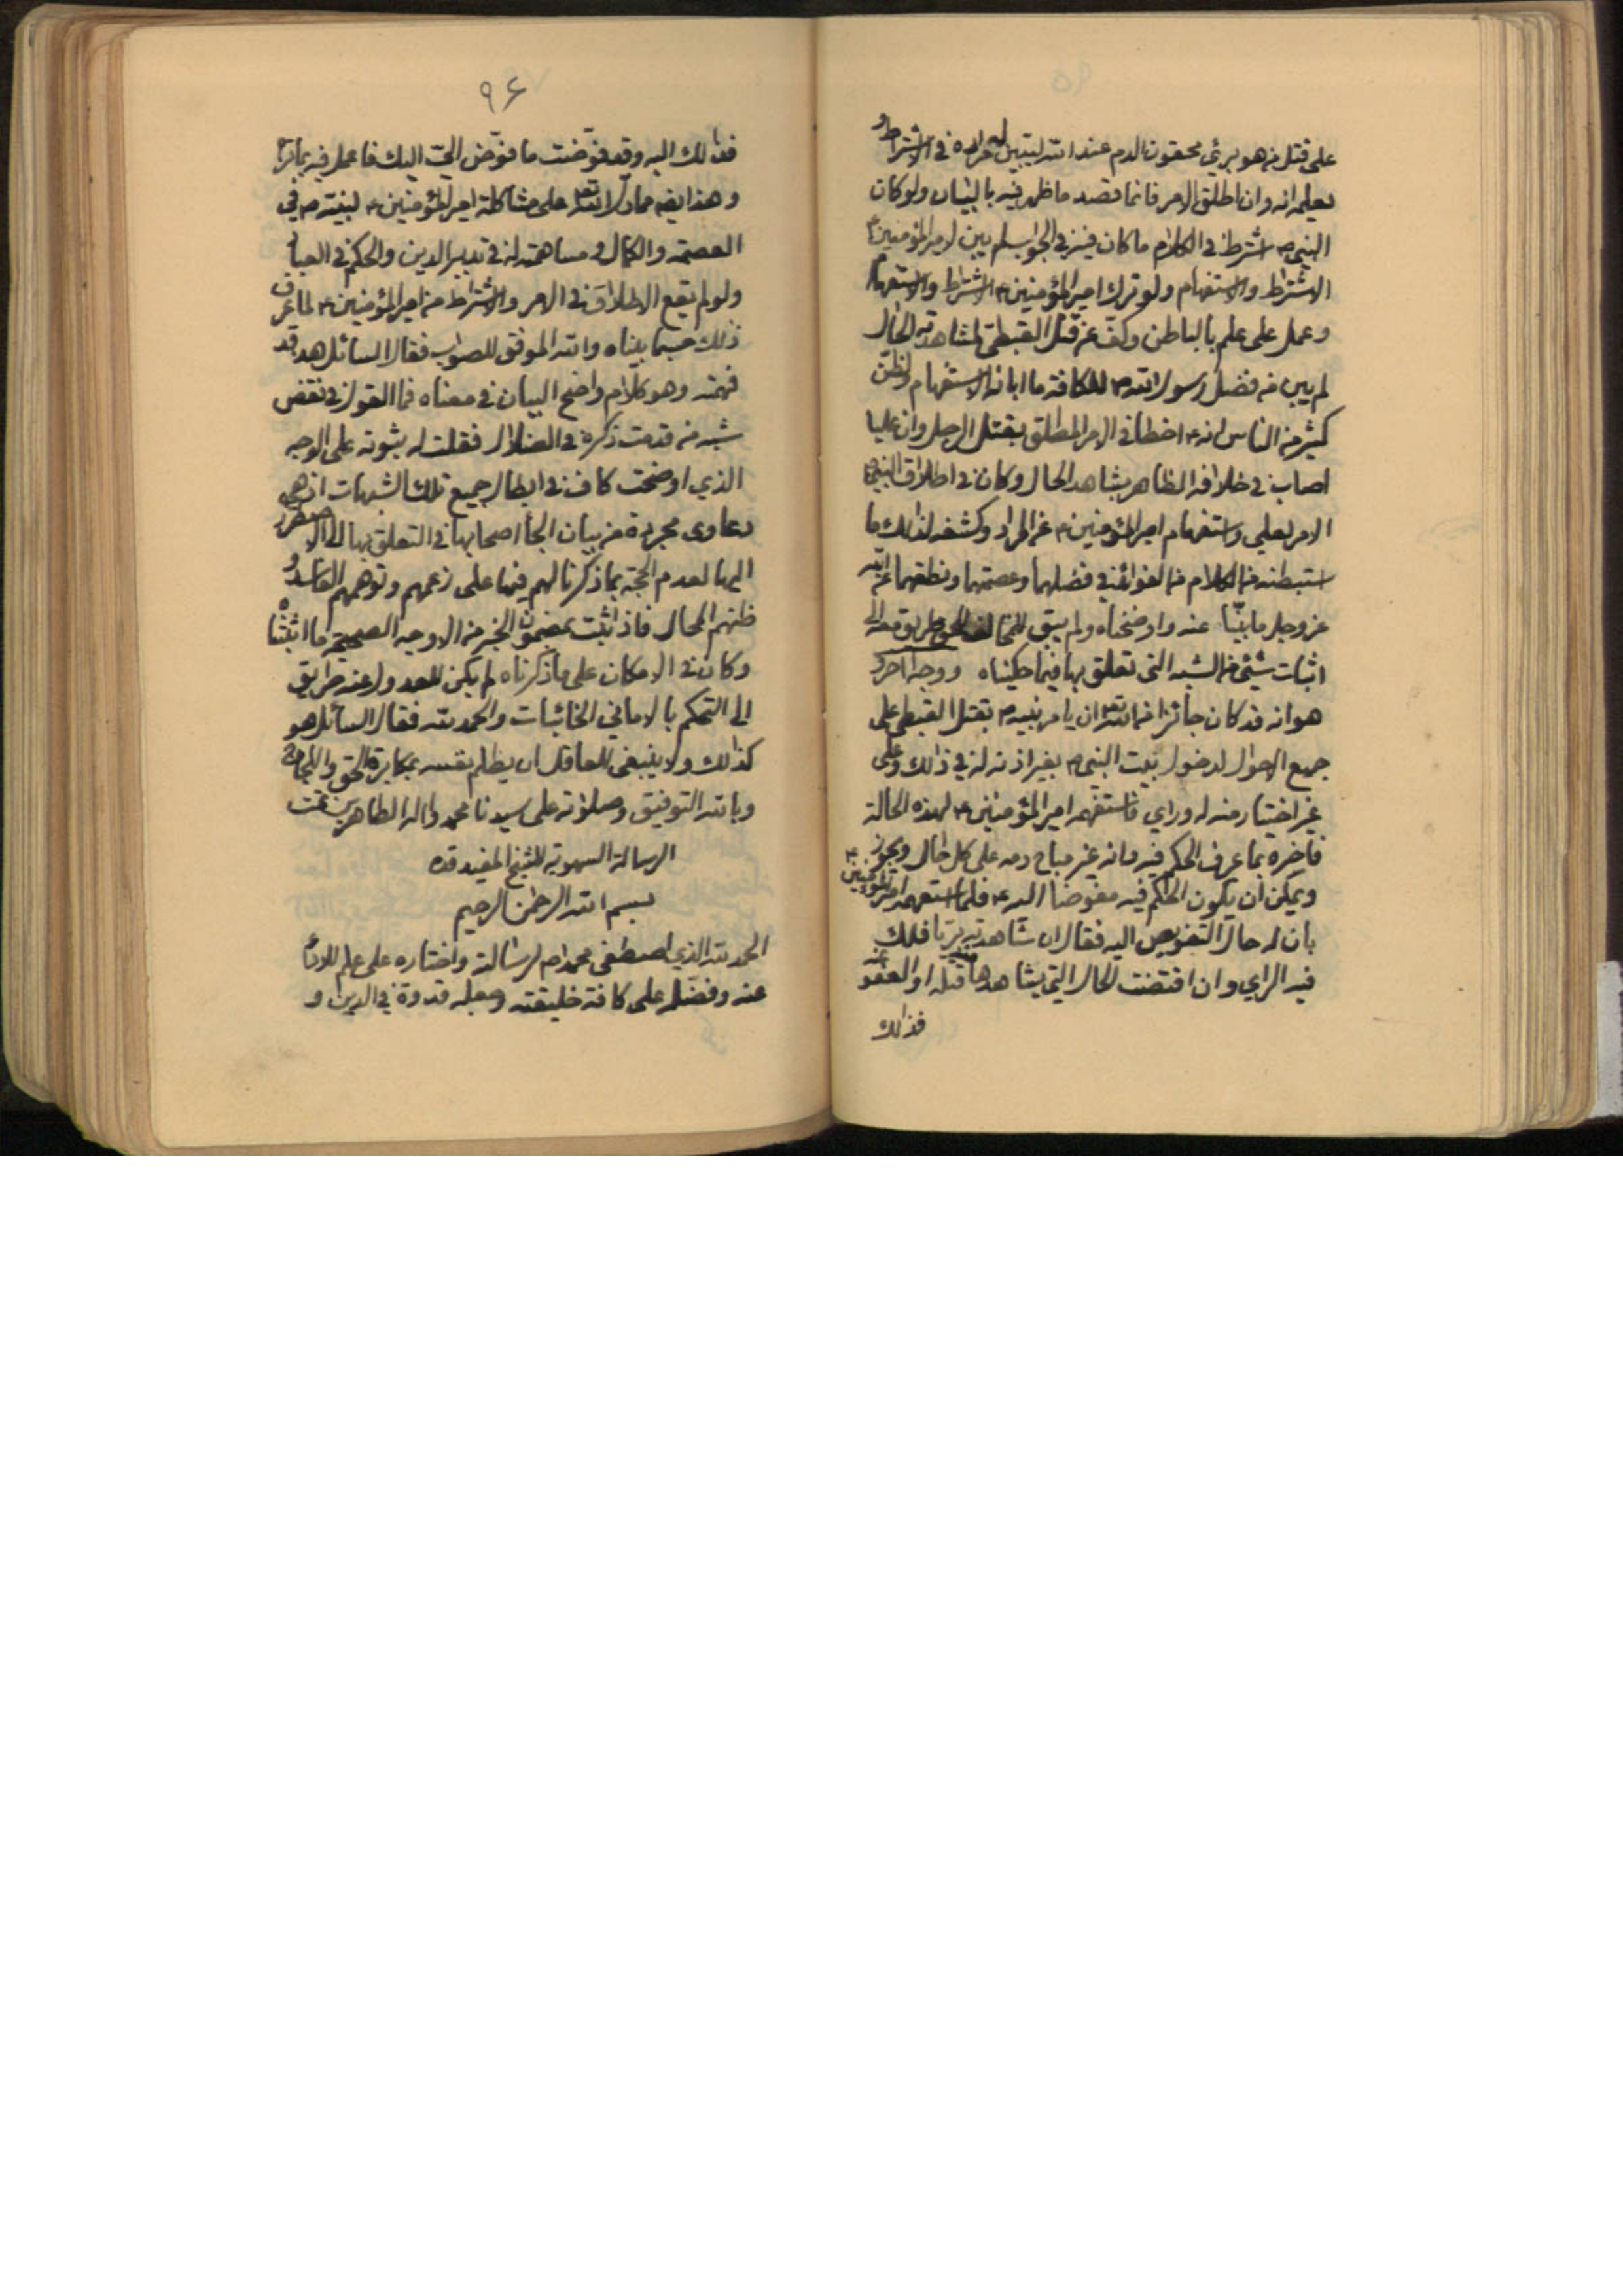 على قتل من هو بريء محقون الدم عند الله ليتبين له مراده في الاشتراط و
يعلم انه وان اطلق الامر فانما قصد ما ظهر فيه بالبيان ولو كان
النبي ص اشترط في الكلام ما كان فيه في الجواب لم يبن لامير المؤمنين ع
الاشتراط والاستفهام ولو ترك امير المؤمنين ع الاشتراط والاستفهام
وعمل على علم بالباطن وكف عن قتل القبطي لمشاهدته الحال
لم يبن من فضل رسول الله ص للكافة ما ابانه الاستفهام ولظن
كثير من الناس انه ع اخطأ في الامر المطلق بقتل الرجل وان عليا
اصاب في خلافه الظاهر بشاهد الحال وكان في اطلاق النبي ص
الامر لعلي واستفهام امير المؤمنين ع عن المراد وكشفه لذلك ما
استبطنه من الكلام من الفوائد في فضلهما وعصمتهما ونطقهما عن الله
عز وجل ما بينا عنه واوضحناه ولم يبق للمخالف الحق طريق معه الى
اثبات شيئ من الشبه التي تعلق بها فيما حكيناه ووجه اخر و
هو انه قد كان جائزا من الله تعه ان يامر نبيه ص بقتل القبطي على
جميع الاحوال لدخول بيت النبي ص بغير اذنه له في ذلك وعلى
غير اختيار منه له وراي فاستفهمه امير المؤمنين ع لهذه الحالة
فاخبره بما عرف الحكم فيه وانه غير مباح دمه على كل حال ويجوز
ويمكن ان يكون الحكم فيه مفوضا اليه ع فلما استفهمه امير المؤمنين ع
بان له حال التفويض اليه فقال ان شاهدته بريا فلك
فيه الراي وان اقتضت الحال التي يشاهدها منه قتله او العفو عنه
فذلك
٩۶
فذلك اليه وقد فوضت ما فوض الي اليك فاعمل فيه بما تراه
وهذا ايضه مما دل الله تعه على مشاكلة امير المؤمنين ع لنبيه ص في
العصمة والكمال ومساهمته له في تدبير الدين والحكم في العباد
ولو لم يقع الاطلاق في الامر والاشتراط من امير المؤمنين ع لما عرف
ذلك حسبما بيناه والله الموفق للصواب فقال السائل هد قد
فهمته وهو كلام واضح البيان في معناه فما القول في نقض
شبه من قدمت ذكره في الضلال فقلت له ثبوته على الوجه
الذي اوضحت كاف في ابطال جميع تلك الشبهات اذ هي
دعاوى مجردة من بيان الجأ اصحابها في التعلق بها الى الاضطرار
اليها لعدم الحجة بما ذكرنا لهم فيها على زعمهم وتوهمهم الفاسد و
ظنهم المحال فاذا ثبت مضمون الخبر من الاوجه الصحيحة ما اثبتناه
وكان في الامكان على ما ذكرناه لم يكن للعدول عنه طريق
الى التحكم بالاماني الخائبات والحمد لله فقال السائل هو
كذلك ولا ينبغي للعاقل ان يظلم نفسه بمكابرة الحق واللجاج
وبالله التوفيق وصلوته على سيدنا محمد واله الطاهرين تمت
الرسالة السهوية للشيخ المفيد قده
بسم الله الرحمن الرحيم
الحمد لله الذي اصطفى محمدا ص لرسالته واختاره على علم للاداء
عنه وفضله على كافة خليقته وجعله قدوة في الدين و